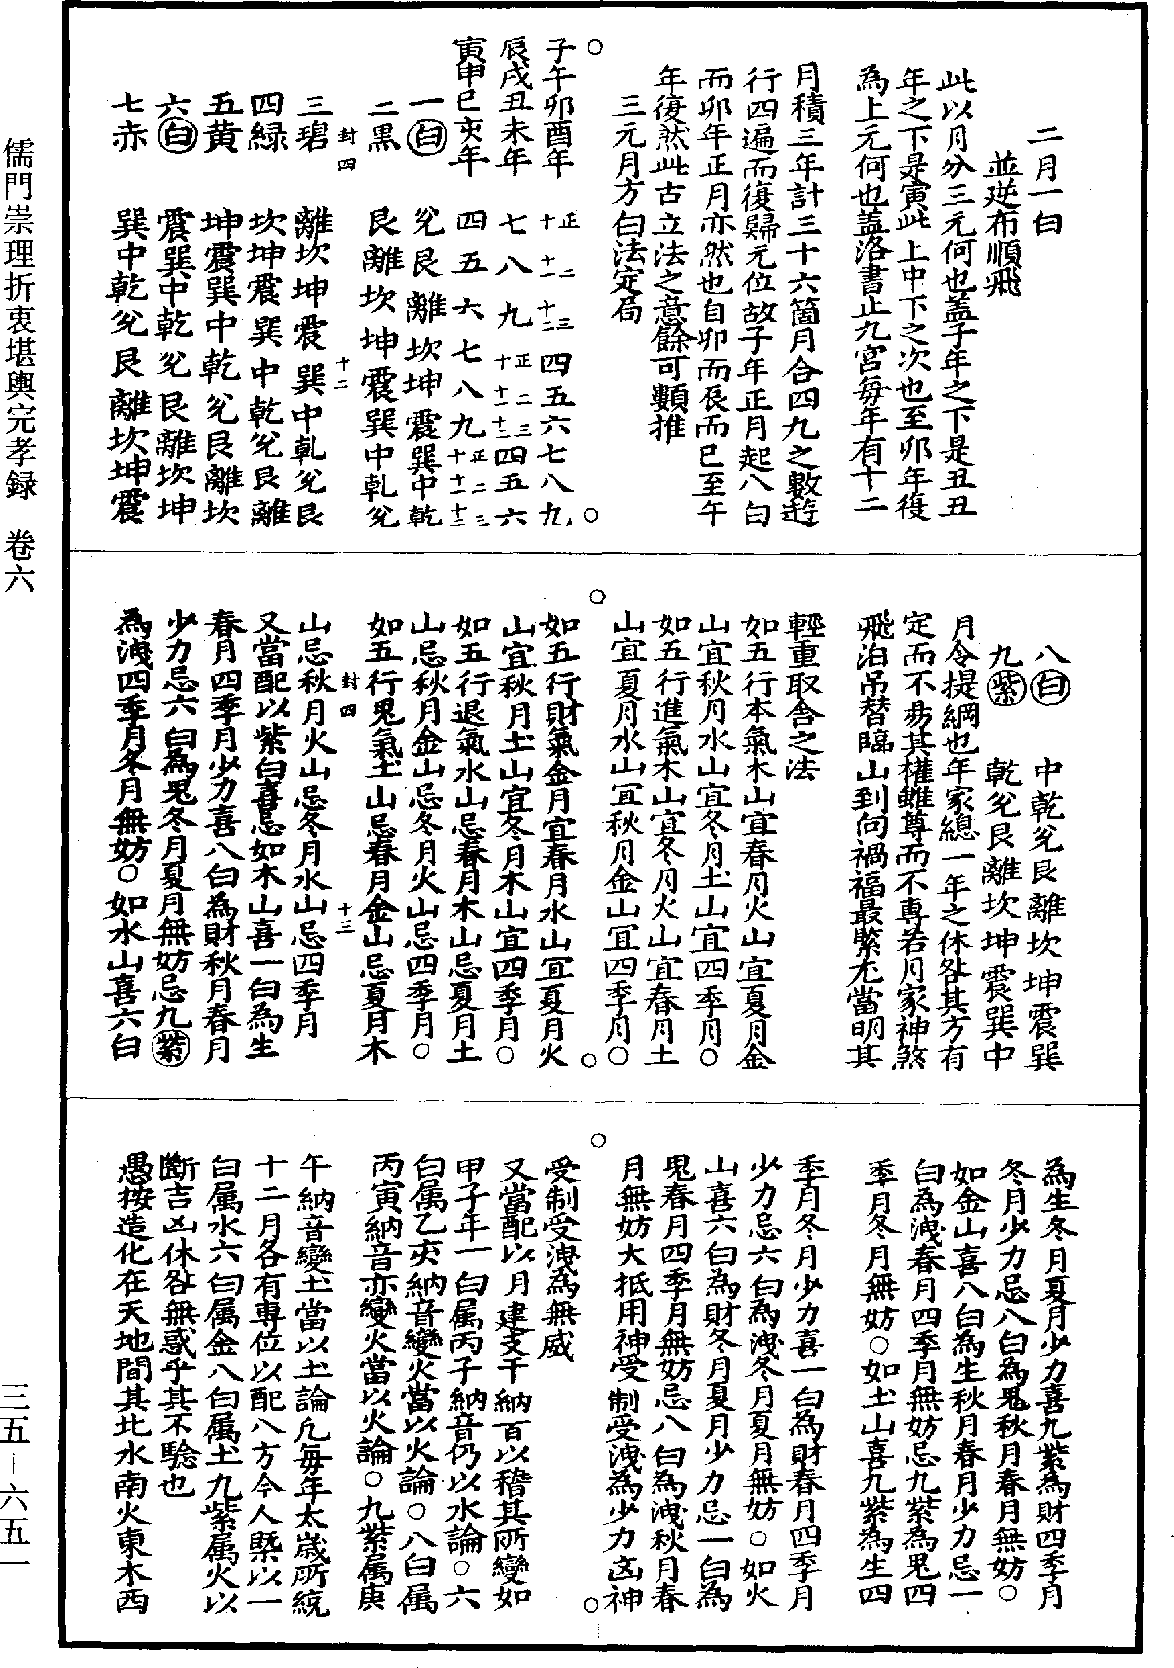 二月一白
並逆布順飛
此以月分三元何也蓋子年之下是丑丑
年之下是寅此上中下之次也至卯年復
為上元何也蓋洛書止九宮每年有十二
月積三年計三十六箇月合四九之數遊
行四遍而復歸元位故子年正月起八白
而卯年正月亦然也自卯而辰而巳至午
年復然此古立法之意餘可類推
三元月方白法定局
子午卯酉年 正十 二十一 三十二 四五六七八九
辰戌丑未年 七八九 正十 二十一 三十二 四五六
寅申巳亥年 四五六七八九 正十 二十一 三十二
一白 兌艮離坎坤震巽中乾
二黑 艮離坎坤震巽中乾兌
三碧 離坎坤震巽中乾兌艮
四綠 坎坤震巽中乾兌艮離
五黃 坤震巽中乾兌艮離坎
六白 震巽中乾兌艮離坎坤
七赤 巽中乾兌艮離坎坤震
封四 十二
八白 中乾兌艮離坎坤震巽
九紫 乾兌艮離坎坤震巽中
月令提綱也年家總一年之休咎其方有
定而不易其權雖尊而不專若月家神煞
飛泊吊替臨山到向禍福最緊尤當明其
輕重取舍之法
如五行本氣木山宜春月火山宜夏月金
山宜秋月水山宜冬月土山宜四季月○
如五行進氣木山宜冬月火山宜春月土
山宜夏月水山宜秋月金山宜四季月○
如五行財氣金月宜春月水山宜夏月火
山宜秋月土山宜冬月木山宜四季月○
如五行退氣水山忌春月木山忌夏月土
山忌秋月金山忌冬月火山忌四季月○
如五行鬼氣土山忌春月金山忌夏月木
山忌秋月火山忌冬月水山忌四季月
封四 十三
又當配以紫白喜忌如木山喜一白為生
春月四季月少力喜八白為財秋月春月
少力忌六白為鬼冬月夏月無妨忌九紫
為洩四季月冬月無妨○如水山喜六白
為生冬月夏月少力喜九紫為財四季月
冬月少力忌八白為鬼秋月春月無妨○
如金山喜八白為生秋月春月少力忌一
白為洩春月四季月無妨忌九紫為鬼四
季月冬月無妨○如土山喜九紫為生四
季月冬月少力喜一白為財春月四季月
少力忌六白為洩冬月夏月無妨○如火
山喜六白為財冬月夏月少力忌一白為
鬼春月四季月無妨忌八白為洩秋月春
月無妨大抵用神受制受洩為少力凶神
受制受洩為無威
又當配以月建支干納百以稽其所變如
甲子年一白屬丙子納音仍以水論○六
白屬乙亥納音變火當以火論○八白屬
丙寅納音亦變火當以火論○九紫屬庚
午納音變土當以土論凡每年太歲所統
十二月各有專位以配八方今人槩以一
白屬水六白屬金八白屬土九紫屬火以
斷吉凶休咎無惑乎其不驗也
愚按造化在天地間其北水南火東木西
儒門崇理折衷堪輿完孝録 卷六
三五—六五一